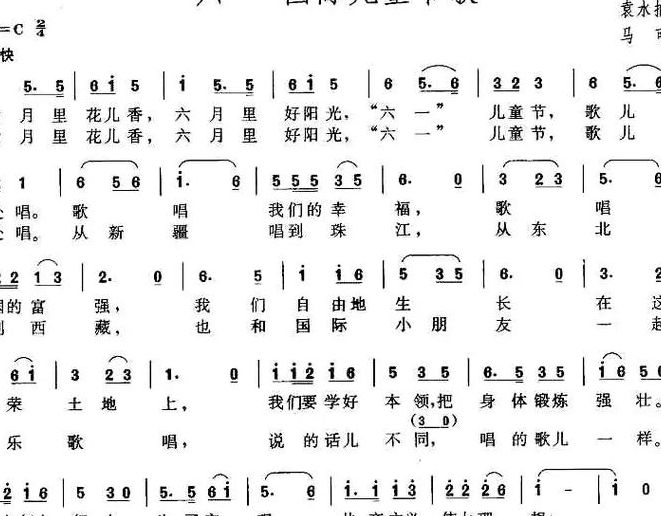 袁水拍
=C 2/4
马 可
快
5. 5 | 6 i 5 | i 5. 5 | 6 i 5 | 6 5. 6 | 3 2 3 | 6 5. 6
月里 花儿香, 六 月里 好阳光, “六 一” 儿童节, 歌儿
月里 花儿香, 六 月里 好阳光, “六 一” 儿童节, 歌儿
1 | 6 5 6 | i. 6 | 5 5 5 3 5 | 6. 0 | 3 2 3 | 5. 6
唱。 歌 唱 我们的幸 福, 歌 唱
唱。 从 新 疆 唱到 珠 江, 从 东 北
2 1 3 | 2. 0 | 6. 5 | i i 6 | 5 3 5 | 6. 0 | 3. 2
的富 强, 我 们 自 由地 生 长 在 这
西 藏, 也 和 国 际 小 朋 友 一 起
6 i | 3 2 3 | 1. 0 | i i 2 i 6 | 5 3 5 | 6. 5 3 5 | i 6 5
荣 土 地 上, 我们要学好 本 领,把 身 体锻炼 强 壮。
(3 0)
乐 歌 唱, 说 的话儿 不 同, 唱 的歌儿 一 样。
2 i 6 | 5 3 0 | 5. 5 6 i | 5. 6 | i. i i 3 | 2 2 2 6 | i - | i 0